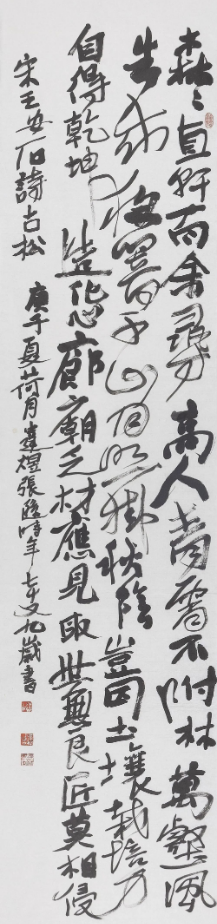 森々直幹百余尋高入青霄不附林萬壑風
生成夜響千山月照掛秋陰豈因土壤栽培力
自得乾坤造化心廊廟乏材應見取世無良匠莫相侵
宋王安石詩古松 庚子夏荷月 張 時年七十又九歲書